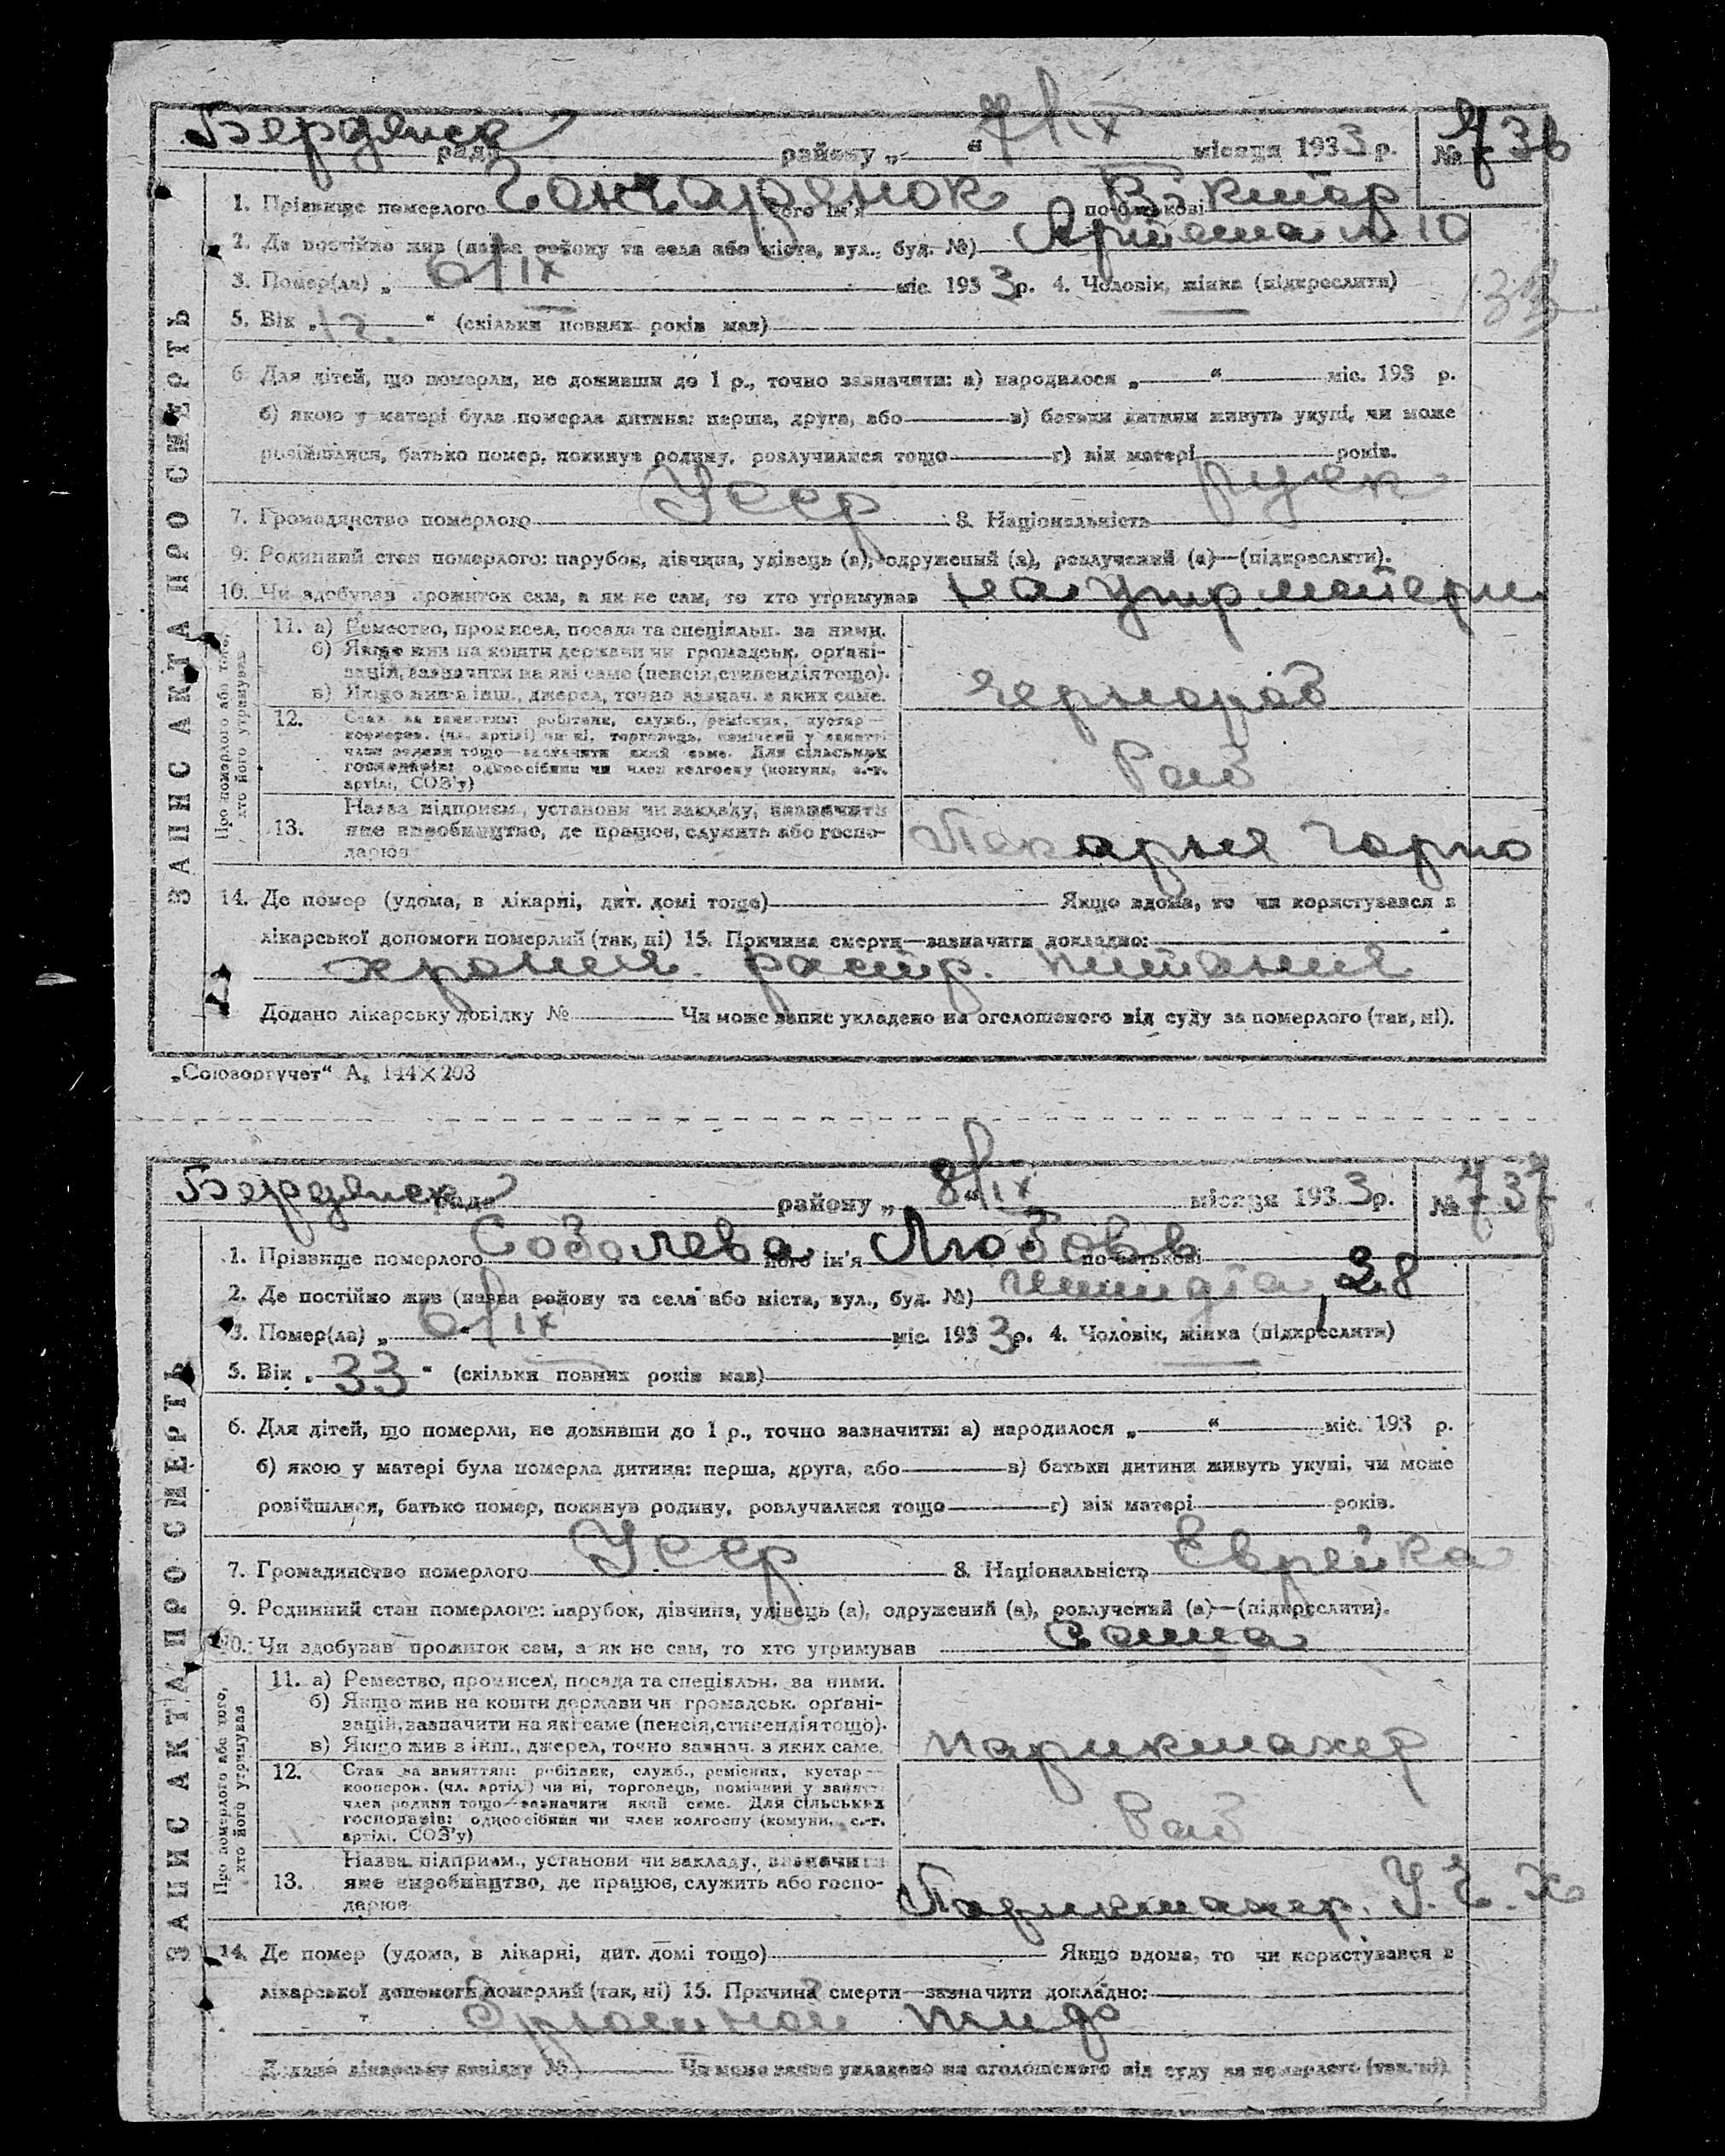 Бердянск рада району „ “ 7/IX місяця 1933 р. № 736
1. Прізвище померлого Гончаренок його ім'я по батькові Віктор
2. Де постійно жив (назва району та села або міста, вул., буд. №) Артема № 10
3. Помер(ла) „ 6/IX міс. 1933 р. 4. Чоловік, жінка (підкреслити)
5. Вік „ “ (скільки повних років мав)
6. Для дітей, що померли, не доживши до 1 р., точно зазначити: а) народилося „ “ міс. 193 р.
б) якою у матері була померла дитина: перша, друга, або в) батьки дитини живуть укупі, чи може
розійшлися, батько помер, покинув родину, розлучилися тощо г) вік матері років.
7. Громадянство померлого Усср 8. Національність руск
9. Родинний стан померлого: парубок, дівчина, удівець (а), одружений (а), розлучений (а)—(підкреслити).
10. Чи здобував прожиток сам, а як не сам, то хто утримував на утр матери
ЗАПИС АКТА ПРО СМЕРТЬ
Про померлого або того, хто його утримував
11. а) Ремество, промисел, посада та спеціяльн. за ними.
б) Якщо жив на кошти держави чи громадськ. органі-
зацій, зазначити на які саме (пенсія, стипендія тощо).
в) Якщо жив з інш., джерел, точно зазнач. з яких саме.
чернораб
12. Стан за заняттям: робітник, служб., ремісник, кустар—
кооперов. (чл. артілі) чи ні, торговець, помічний у занятті
член родини тощо—зазначити який саме. Для сільських
господарів: одноосібник чи член колгоспу (комуни, с.-г.
артілі, СОЗ'у)
Раб
13. Назва підприєм., установи чи закладу, зазначити
яке виробництво, де працює, служить або госпо-
дарює
Пекарня Горпо
14. Де помер (удома, в лікарні, дит. домі тощо) Якщо вдома, то чи користувався з
лікарської допомоги померлий (так, ні) 15. Причина смерти—зазначити докладно:
хронич. растр. питания
Додано лікарську довідку № Чи може запис укладено на оголошеного від суду за померлого (так, ні).
„Союзоргучет“ А₅ 144×203
Бердянск рада району „ 8/IX місяця 1933 р. № 737
1. Прізвище померлого Соболева його ім'я Любовь по батькові
2. Де постійно жив (назва району та села або міста, вул., буд. №) Шмидта, 28
3. Помер(ла) „ 6/IX міс. 1933 р. 4. Чоловік, жінка (підкреслити)
5. Вік „ 33 “ (скільки повних років мав)
6. Для дітей, що померли, не доживши до 1 р., точно зазначити: а) народилося „ “ міс. 193 р.
б) якою у матері була померла дитина: перша, друга, або в) батьки дитини живуть укупі, чи може
розійшлися, батько помер, покинув родину, розлучилися тощо г) вік матері років.
7. Громадянство померлого Усср 8. Національність Еврейка
9. Родинний стан померлого: парубок, дівчина, удівець (а), одружений (а), розлучений (а)—(підкреслити).
10. Чи здобував прожиток сам, а як не сам, то хто утримував сама
ЗАПИС АКТА ПРО СМЕРТЬ
Про померлого або того, хто його утримував
11. а) Ремество, промисел, посада та спеціяльн. за ними.
б) Якщо жив на кошти держави чи громадськ. органі-
зацій, зазначити на які саме (пенсія, стипендія тощо).
в) Якщо жив з інш., джерел, точно зазнач. з яких саме.
парикмахер
12. Стан за заняттям: робітник, служб., ремісник, кустар—
кооперов. (чл. артілі) чи ні, торговець, помічний у занятті
член родини тощо—зазначити який саме. Для сільських
господарів: одноосібник чи член колгоспу (комуни, с.-г.
артілі, СОЗ'у)
Раб
13. Назва підприєм., установи чи закладу, зазначити
яке виробництво, де працює, служить або госпо-
дарює
Парикмахер.
14. Де помер (удома, в лікарні, дит. домі тощо) Якщо вдома, то чи користувався з
лікарської допомоги померлий (так, ні) 15. Причина смерти—зазначити докладно:
Брюшной тиф
Додано лікарську довідку № Чи може запис укладено на оголошеного від суду за померлого (так, ні).